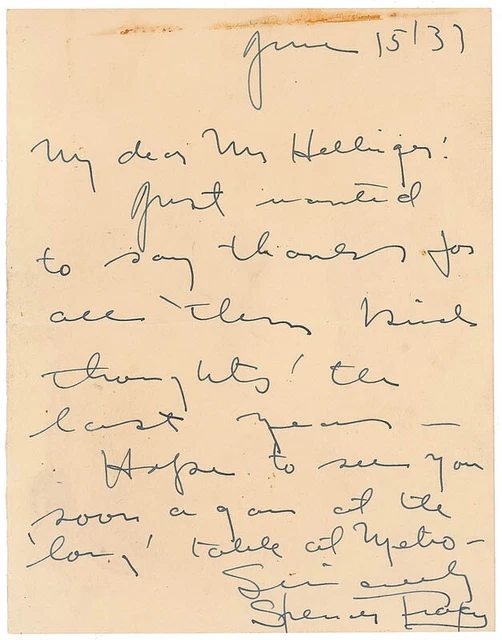 June 15/37
My dear Mr Hellinger:
Just wanted
to say thanks for
all 'them kind
thoughts' the
last year —
Hope to see you
soon again at the
'long' table at Metro —
Sincerely
Spencer Tracy